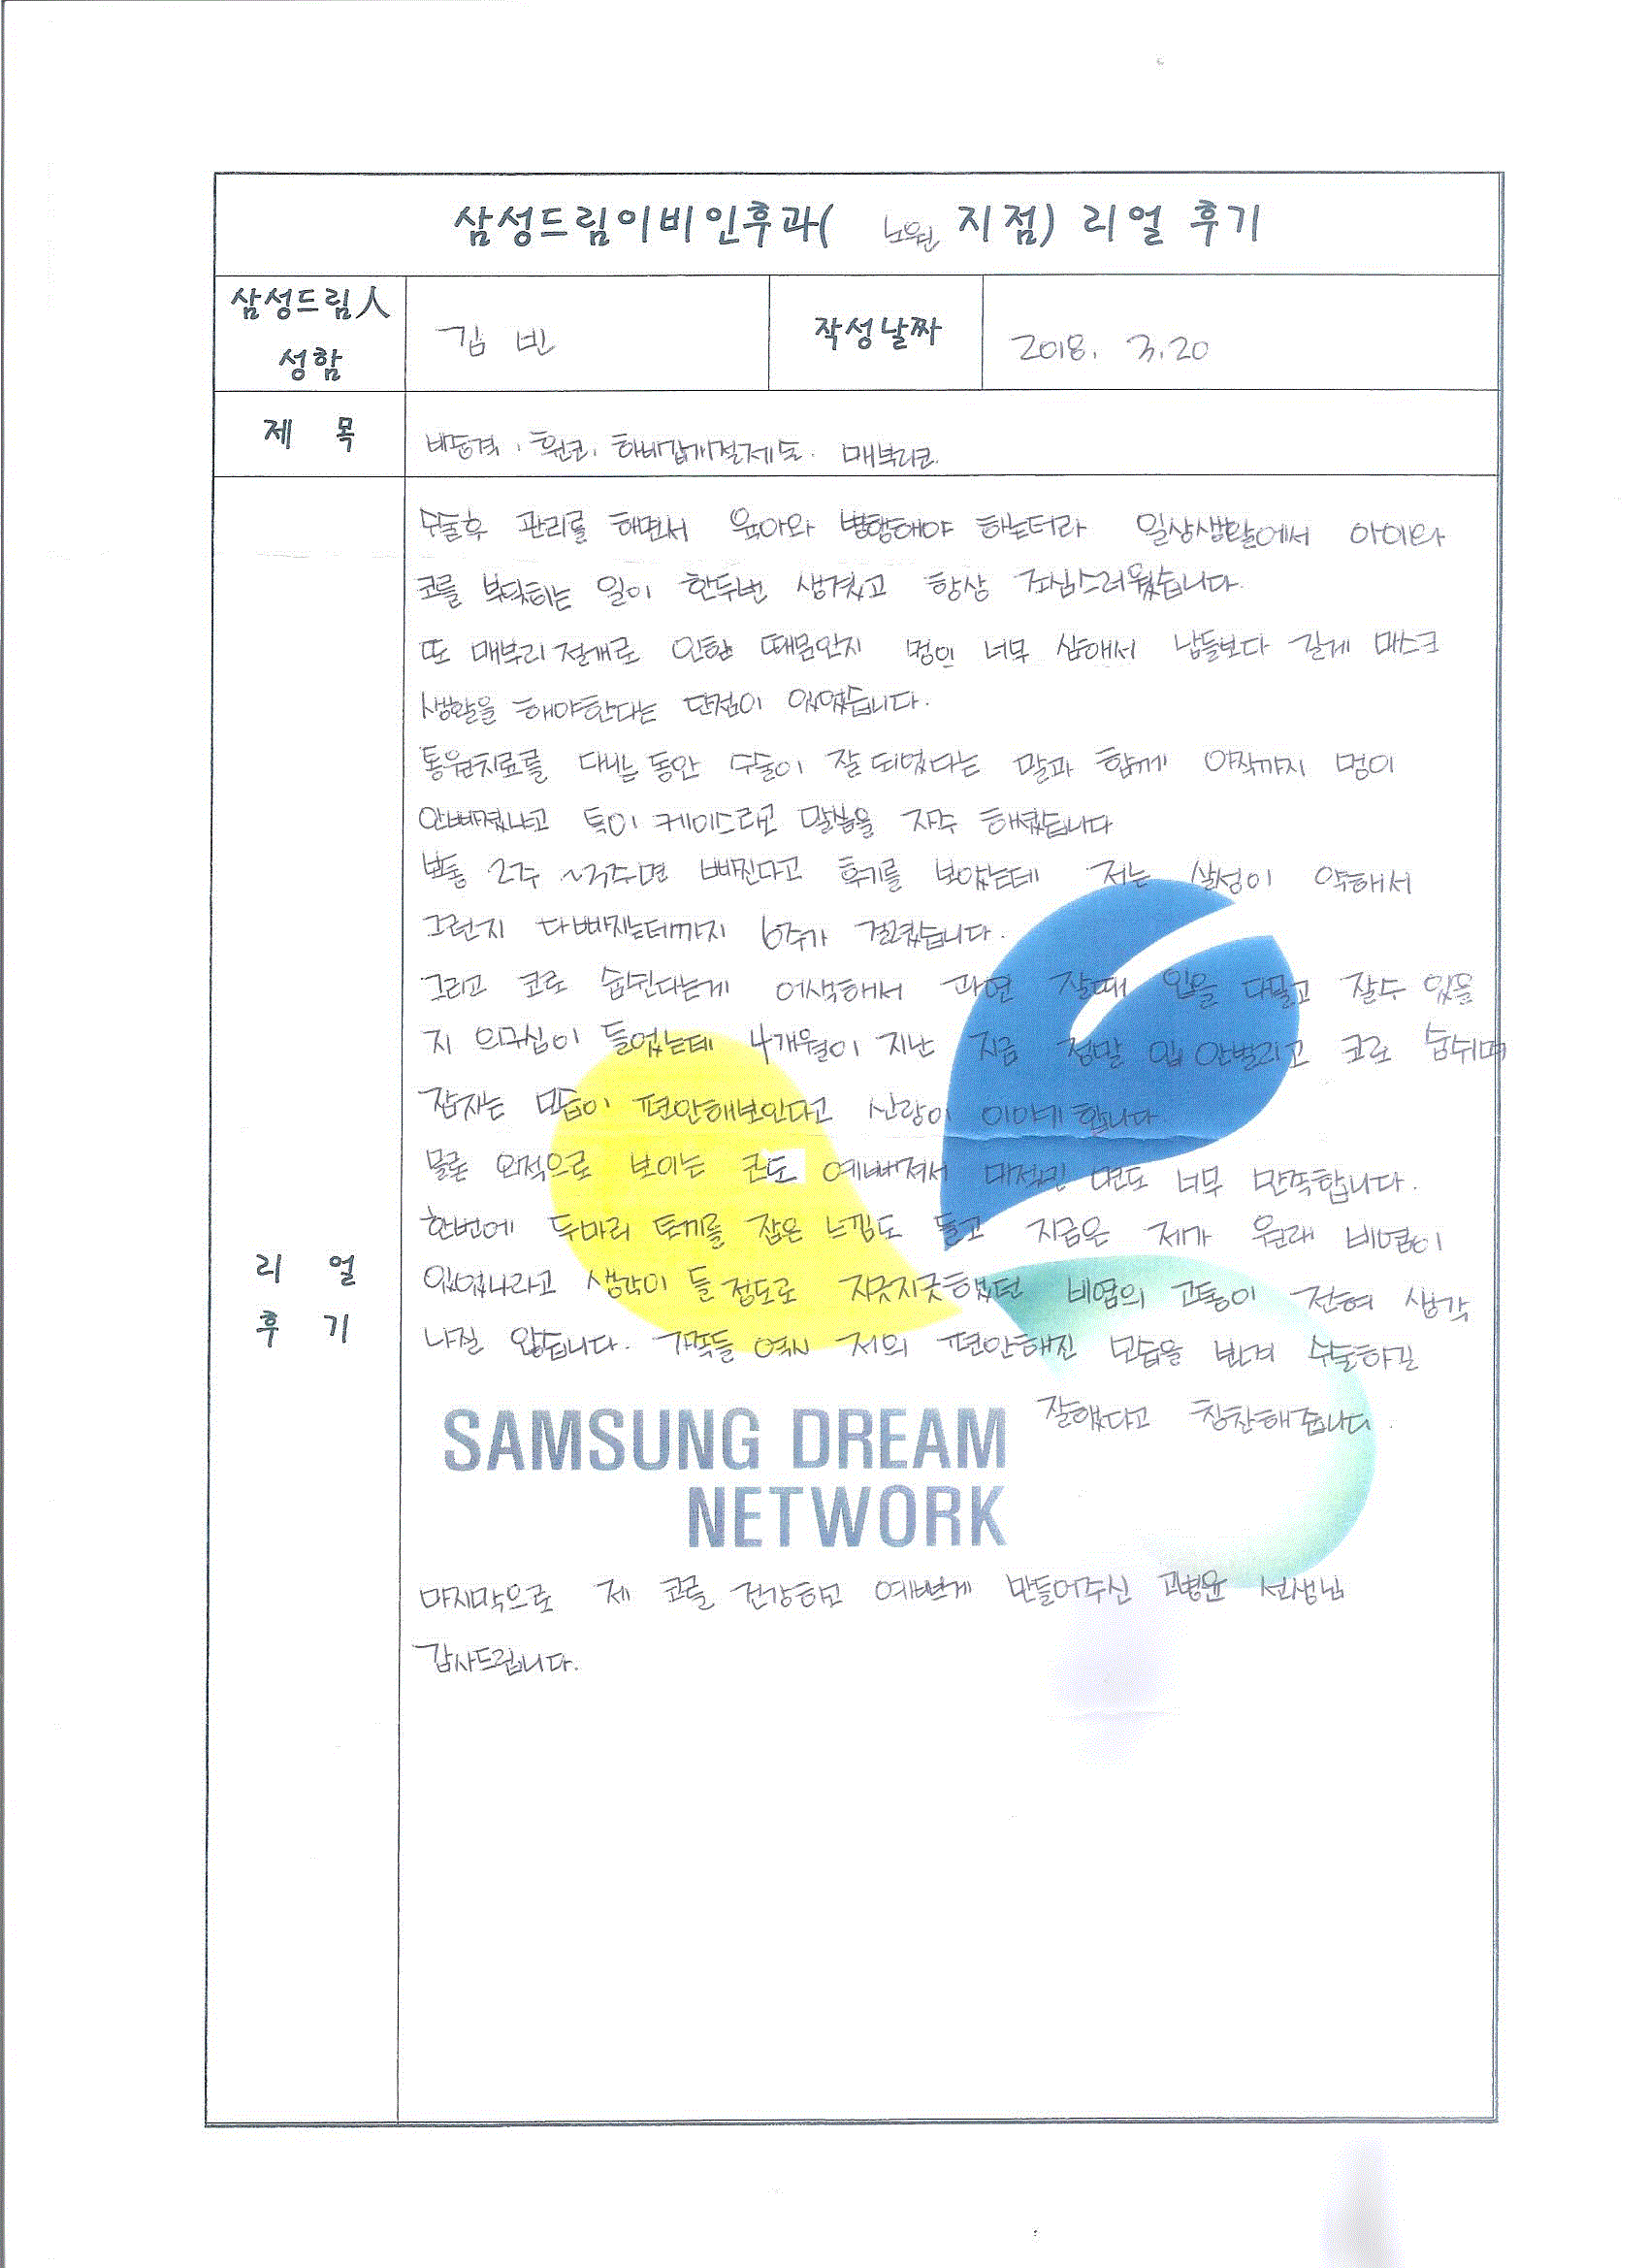 삼성드림이비인후과( 노원 지점) 리얼 후기
삼성드림人
성함
김 빈
작성날짜
2018. 3.20
제 목
비중격, 휜코, 하비갑개절제술. 매부리코.
수술후 관리를 하면서 육아와 병행해야 하는터라 일상생활에서 아이와
코를 부딪히는 일이 한두번 생겼고 항상 조심스러웠습니다.
또 매부리 절개로 인함 때문인지 멍이 너무 심해서 남들보다 길게 마스크
생활을 해야한다는 단점이 있었습니다.
통원치료를 다니는 동안 수술이 잘 되었다는 말과 함께 아직까지 멍이
안빠졌냐고 특이 케이스라고 말씀을 자주 해셨습니다
보통 2주 ~3주면 빠진다고 후기를 보았는데 저는 살성이 약해서
그런지 다빠지는데까지 6주가 걸렸습니다.
그리고 코로 숨쉰다는게 어색해서 과연 잘때 입을 다물고 잘수 있을
지 의구심이 들었는데 4개월이 지난 지금 정말 입 안벌리고 코로 숨쉬며
잠자는 모습이 편안해보인다고 신랑이 이야기 합니다
물론 외적으로 보이는 코도 예뻐져서 미적인 면도 너무 만족합니다.
한번에 두마리 토끼를 잡은 느낌도 들고 지금은 제가 원래 비염이
있었나라고 생각이 들 정도로 지긋지긋했던 비염의 고통이 전혀 생각
나질 않습니다. 가족들 역시 저의 편안해진 모습을 반겨 수술하길
잘했다고 칭찬해줍니다.
리 얼
후 기
SAMSUNG DREAM
NETWORK
마지막으로 제 코를 건강하고 예쁘게 만들어주신 고병윤 선생님
감사드립니다.